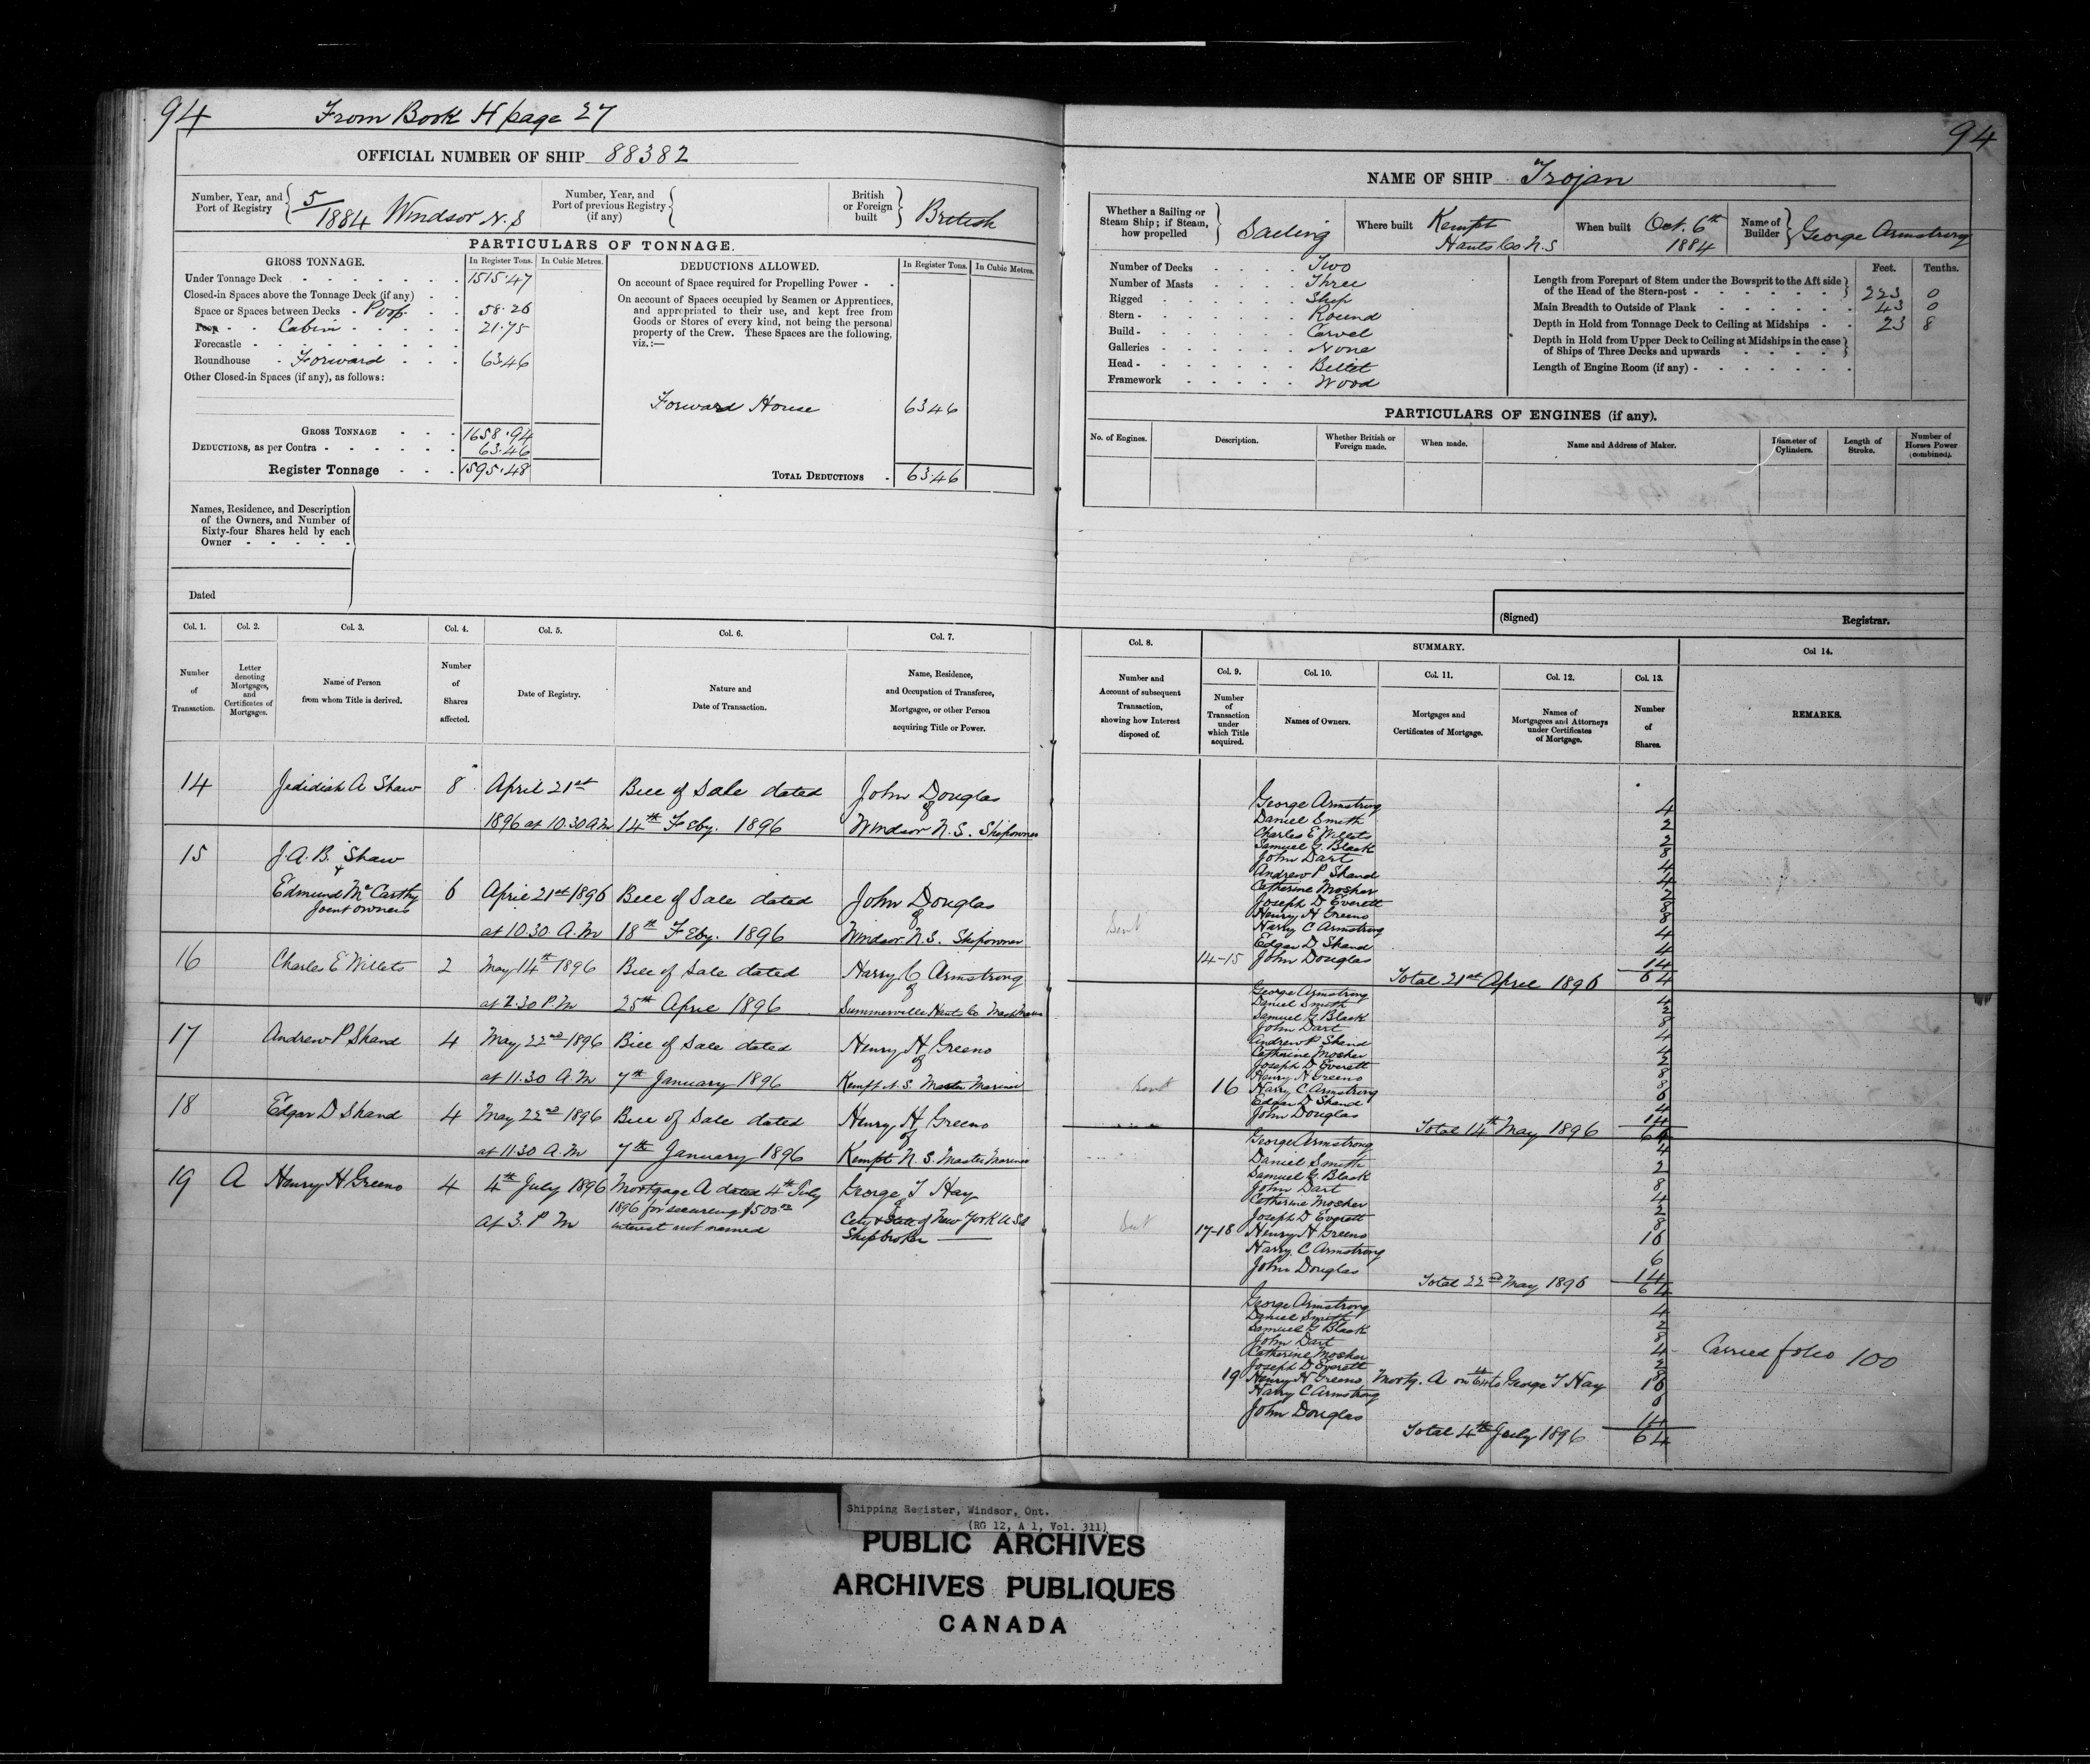 94 From Book H page 27
OFFICIAL NUMBER OF SHIP 88382
Number, Year, and Port of Registry 5/1884 Windsor N.S
Number, Year, and Port of previous Registry (if any)
British or Foreign built British
PARTICULARS OF TONNAGE.
GROSS TONNAGE. In Register Tons. In Cubic Metres.
Under Tonnage Deck 1515.47
Closed-in Spaces above the Tonnage Deck (if any)
Space or Spaces between Decks Poop 58.26
Poop Cabin 21.75
Forecastle
Roundhouse Forward 63.46
Other Closed-in Spaces (if any), as follows:
GROSS TONNAGE 1658.94
DEDUCTIONS, as per Contra 63.46
Register Tonnage 1595.48
DEDUCTIONS ALLOWED. In Register Tons. In Cubic Metres.
On account of Space required for Propelling Power
On account of Spaces occupied by Seamen or Apprentices,
and appropriated to their use, and kept free from
Goods or Stores of every kind, not being the personal
property of the Crew. These Spaces are the following,
viz.:—
Forward House 63.46
TOTAL DEDUCTIONS 63.46
Names, Residence, and Description
of the Owners, and Number of
Sixty-four Shares held by each
Owner
Dated
Col. 1. Col. 2. Col. 3. Col. 4. Col. 5. Col. 6. Col. 7.
Number of Transaction.
Letter denoting Mortgages, and Certificates of Mortgages.
Name of Person from whom Title is derived.
Number of Shares affected.
Date of Registry.
Nature and Date of Transaction.
Name, Residence, and Occupation of Transferee, Mortgagee, or other Person acquiring Title or Power.
14 Jedidiah A Shaw 8 April 21st Bill of Sale dated John Douglas
of
1896 at 10.30 A.M 14th Feby. 1896 Windsor N.S. Shipowner
15 J.A.B. Shaw
+
Edmund McCarthy 6 April 21st 1896 Bill of Sale dated John Douglas
Joint owners of
at 10.30. A.M 18th Feby. 1896 Windsor N.S. Shipowner
16 Charles E Willets 2 May 14th 1896 Bill of Sale dated Harry C Armstrong
of
at 2.30 P.M 25th April 1896 Summerville Hants Co
17 Andrew P Shand 4 May 22nd 1896 Bill of Sale dated Henry H Greeno
of
at 11.30 A.M 7th January 1896 Kempt N.S. Master Mariner
18 Edgar D Shand 4 May 22nd 1896 Bill of Sale dated Henry H Greeno
of
at 11.30 A.M 7th January 1896 Kempt N.S. Master Mariner
19 A Henry H Greeno 4 4th July 1896 Mortgage A dated 4th July George T Hay
1896 for securing $500.00 of
at 3. P M interest not named City & State of New York U.S.A
Shipbroker
94
NAME OF SHIP Trojan
Whether a Sailing or Steam Ship; if Steam, how propelled Sailing
Where built Kempt Hants Co N.S
When built Oct. 6th 1884
Name of Builder George Armstrong
Number of Decks Two
Number of Masts Three
Rigged Ship
Stern Round
Build Carvel
Galleries None
Head Billet
Framework Wood
Feet. Tenths.
Length from Forepart of Stem under the Bowsprit to the Aft side
of the Head of the Stern-post 223 0
Main Breadth to Outside of Plank 43 0
Depth in Hold from Tonnage Deck to Ceiling at Midships 23 8
Depth in Hold from Upper Deck to Ceiling at Midships in the case
of Ships of Three Decks and upwards
Length of Engine Room (if any)
PARTICULARS OF ENGINES (if any).
No. of Engines. Description. Whether British or Foreign made. When made. Name and Address of Maker. Diameter of Cylinders. Length of Stroke. Number of Horses Power (combined).
(Signed) Registrar.
Col. 8. SUMMARY. Col 14.
Col. 9. Col. 10. Col. 11. Col. 12. Col. 13.
Number and Account of subsequent Transaction, showing how Interest disposed of.
Number of Transaction under which Title acquired.
Names of Owners.
Mortgages and Certificates of Mortgage.
Names of Mortgagees and Attorneys under Certificates of Mortgage.
Number of Shares.
REMARKS.
George Armstrong 4
Daniel Smith 2
Charles E Willets 2
Samuel G. Black 8
John Dart 4
Andrew P Shand 4
Catherine Mosher 2
Joseph D Everett 8
Henry H Greeno 8
Sent Harry C Armstrong 4
Edgar D Shand 4
14-15 John Douglas 14
Total 21st April 1896 64
George Armstrong 4
Daniel Smith 2
Samuel G. Black 8
John Dart 4
Andrew P Shand 4
Catherine Mosher 2
Joseph D Everett 8
Henry H Greeno 8
Sent 16 Harry C Armstrong 6
Edgar D Shand 4
John Douglas 14
Total 14th May 1896 64
George Armstrong 4
Daniel Smith 2
Samuel G. Black 8
John Dart 4
Catherine Mosher 2
Joseph D Everett 8
Sent 17-18 Henry H Greeno 16
Harry C Armstrong 6
John Douglas 14
Total 22nd May 1896 64
George Armstrong 4
Daniel Smith 2
Samuel G Black 8
John Dart 4
Catherine Mosher 2 Carried folio 100
Joseph D Everett 8
19 Henry H Greeno Mortg. A on 4/64 to George T Hay 16
Harry C Armstrong 6
John Douglas 14
Total 4th July 1896 64
Shipping Register, Windsor, Ont.
(RG 12, A 1, Vol. 311)
PUBLIC ARCHIVES
ARCHIVES PUBLIQUES
CANADA